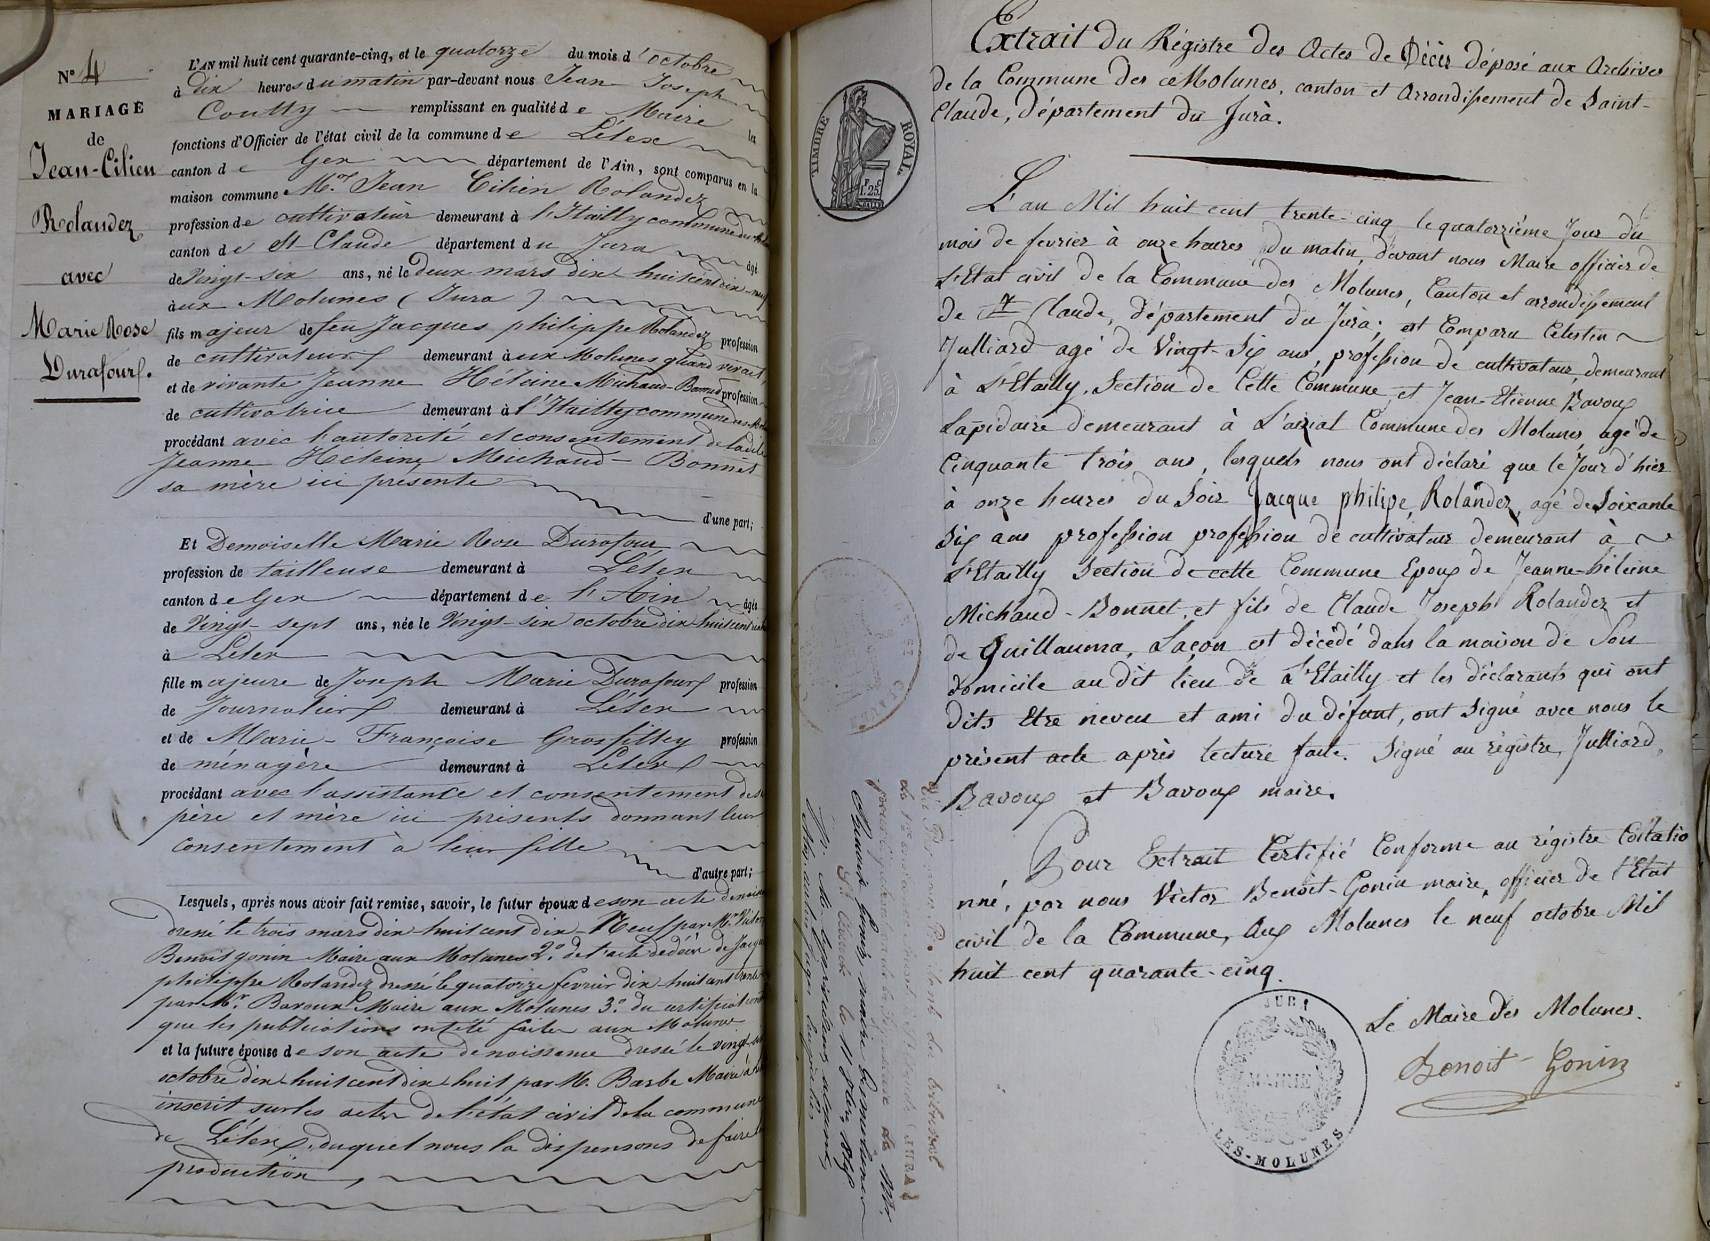 N° 4
MARIAGE
de
Jean-Cilien
Rolandez
avec
Marie Rose
Durafour.
L'AN mil huit cent quarante-cinq, et le quatorze du mois d'octobre
à dix heures du matin par-devant nous Jean Joseph
Coutty remplissant en qualité de Maire les
fonctions d'Officier de l'état civil de la commune de Lélex
canton de Gex département de l'Ain, sont comparus en la
maison commune Mr Jean Cilien Rolandez
profession de cultivateur demeurant à l'Itailly commune des
canton de St Claude département du Jura âgé
de Vingt-six ans, né le deux mars dix huit cent dix-neuf
à aux Molunes (Jura)
fils majeur de feu Jacques philippe Rolandez profession
de cultivateur demeurant à aux Molunes quand vivait
et de vivante Jeanne Héleine Michaud-Bonnet profession
de cultivatrice demeurant à l'Itailly commune des
procédant avec l'autorité et consentement de ladite
Jeanne Héleine Michaud-Bonnet
sa mère ici présente
d'une part;
Et Demoiselle Marie Rose Durafour
profession de tailleuse demeurant à Lélex
canton de Gex département de l'Ain âgée
de Vingt-sept ans, née le Vingt-six octobre dix huit cent
à Lélex
fille majeure de Joseph Marie Durafour profession
de Journalier demeurant à Lélex
et de Marie-Françoise Grosfilley profession
de ménagère demeurant à Lélex
procédant avec l'assistance et consentement des
père et mère ici présents donnant leur
consentement à leur fille
d'autre part;
Lesquels, après nous avoir fait remise, savoir, le futur époux de son acte de
dressé le trois mars dix huit cent dix-Neuf par Mr
Benoit gonin Maire aux Molunes 2° de l'acte de décès de
philippe Rolandez dressé le quatorze fevrier dix huit cent
par Mr Bavoux Maire aux Molunes 3° du certificat
que les publications ont été faites aux Molunes
et la future épouse de son acte de naissance dressé le vingt-
octobre dix huit cent dix huit par Mr. Barbe Maire à
inscrit sur les actes de l'état civil de la commune
de Lélex, duquel nous la dispensons de faire
production,
Extrait du Régistre des Actes de Décès déposé aux Archives
de la Commune des Molunes, canton et Arrondissement de Saint-
Claude, Département du Jura.
TIMBRE ROYAL
L'an Mil huit cent trente cinq le quatorzième Jour du
mois de fevrier à onze heures du matin, devant nous Maire officier de
L'Etat civil de la Commune des Molunes, Canton et arrondissement
de St Claude, Département du Jura; est Comparu Celestin
Julliard agé de Vingt-Six ans, profession de cultivateur, demeurant
à L'Etailly, Section de Cette Commune, et Jean-Etienne Bavoux
Lapidaire demeurant à L'airial Commune des Molunes, agé de
Cinquante trois ans, lesquels nous ont déclaré que le Jour d'hier
à onze heures du Soir Jacque philipe Rolandez, agé de Soixante
Six ans profession profession de cultivateur demeurant à
L'Etailly Section de cette Commune Epoux de Jeanne-héleine
Michaud-Bonnet et fils de Claude Joseph Rolandez et
de Guillauma, Laçon est décédé dans la maison de Son
domicile au dit lieu de L'Etailly et les déclarants qui ont
dits Etre neveu et ami du défunt, ont Signé avec nous le
présent acte après lecture faite. Signé au régistre, Julliard,
Bavoux et Bavoux maire.
Pour Extrait Certifié Conforme au régistre Collatio
nné, par nous Victor Benoit-Gonin maire, officier de l'Etat
civil de la Commune, Aux Molunes le neuf octobre Mil
huit cent quarante-cinq.
Le Maire des Molunes.
Benoit-Gonin
JURA
MAIRIE
LES-MOLUNES